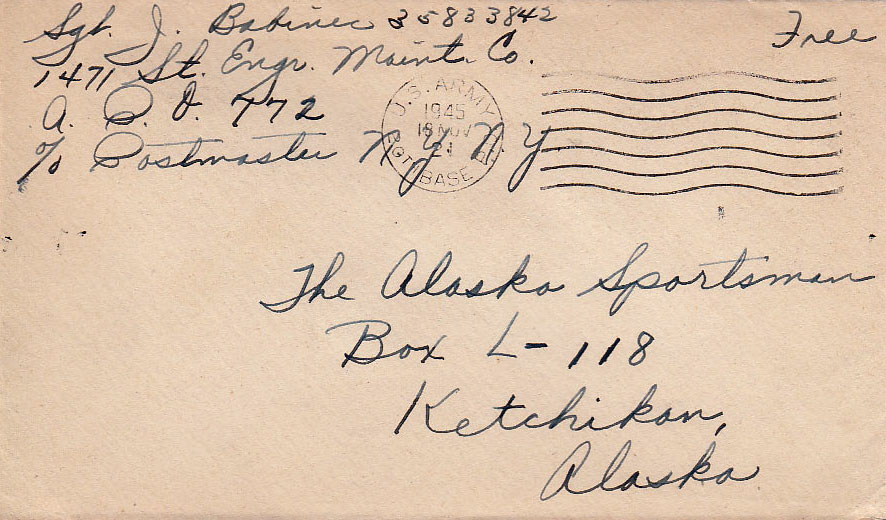 Sgt. J. Babinec 35833842
Free
1471 St. Engr. Maint. Co.
A. P. O. 772
c/o Postmaster N Y N Y
U.S. ARMY
1945
18 NOV
21
BASE
The Alaska Sportsman
Box L-118
Ketchikan,
Alaska